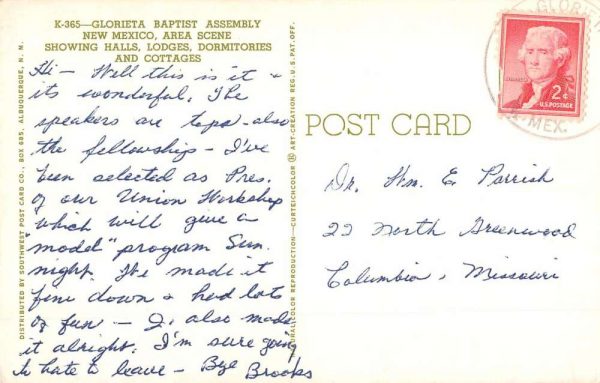 K-365—GLORIETA BAPTIST ASSEMBLY
NEW MEXICO, AREA SCENE
SHOWING HALLS, LODGES, DORMITORIES
AND COTTAGES
Hi — Well this is it +
its wonderful. The
speakers are tops - also
the fellowship - I've
been selected as Pres.
of our Union Workshop
which will give a
"model" program Sun.
night. We made it
fine down + had lots
of fun — J. also made
it alright. I'm sure going
to hate to leave — Bye Brooks
DISTRIBUTED BY SOUTHWEST POST CARD CO., BOX 685, ALBUQUERQUE, N. M.
NATURAL COLOR REPRODUCTION—CURTEICHCOLOR ART-CREATION REG. U.S. PAT. OFF.
POST CARD
GLORIETA
MEX.
2¢
U.S. POSTAGE
Dr. Wm. E. Parrish
22 North Greenwood
Columbia, Missouri